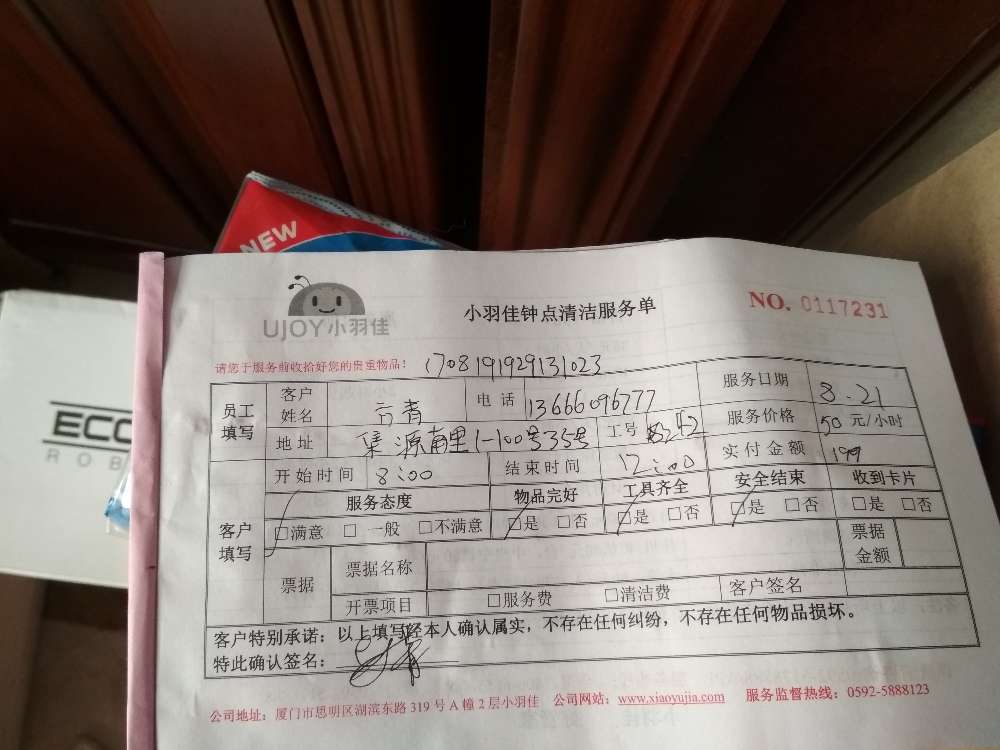 NEW
ECO
ROB
UJOY小羽佳
小羽佳钟点清洁服务单
NO. 0117231
请您于服务前收拾好您的贵重物品: 1708191929131023
员工填写 客户姓名 方青 电话 13666096777 服务日期 8.21
地址 集源南里1-100号35号 工号 服务价格 50元/小时
开始时间 8:00 结束时间 12:00 实付金额 199
客户填写 服务态度 物品完好 工具齐全 安全结束 收到卡片
□满意 □一般 □不满意 □是 □否 □是 □否 □是 □否 □是 □否
票据 票据名称 票据金额
开票项目 □服务费 □清洁费 客户签名
客户特别承诺:以上填写经本人确认属实,不存在任何纠纷,不存在任何物品损坏。
特此确认签名:
公司地址:厦门市思明区湖滨东路 319 号 A 幢 2 层小羽佳 公司网站:www.xiaoyujia.com 服务监督热线:0592-5888123